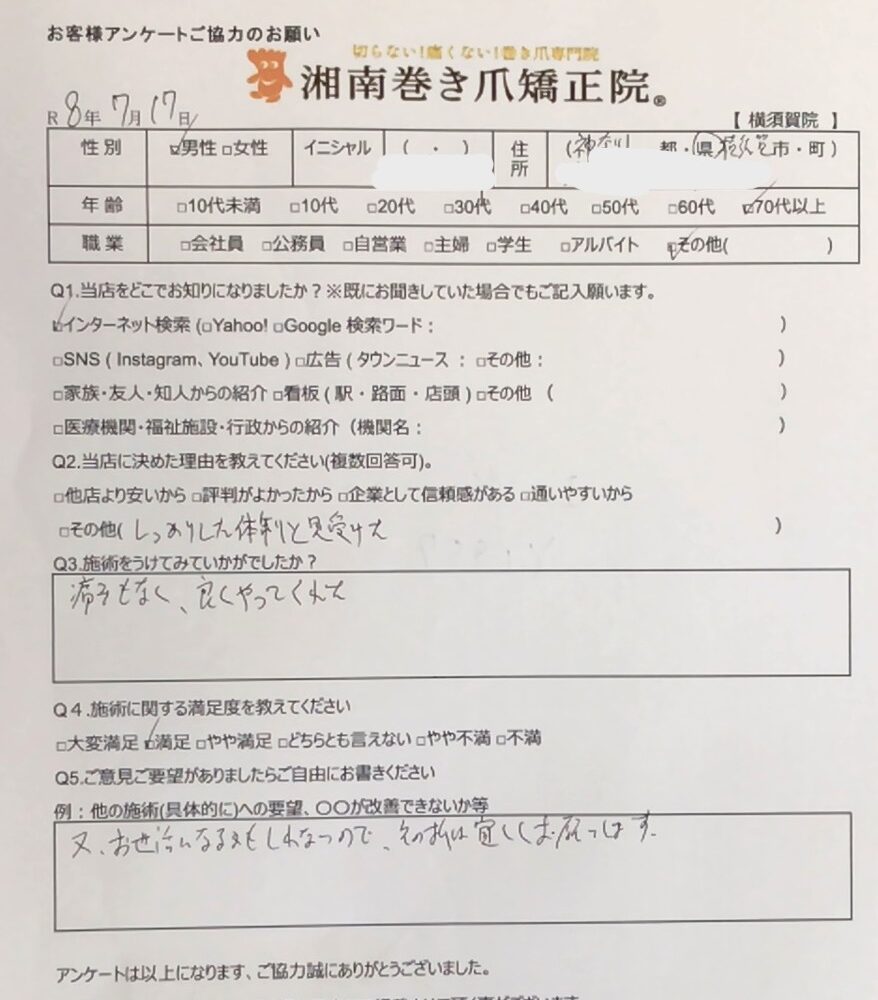 お客様アンケートご協力のお願い
切らない!痛くない!巻き爪専門院
湘南巻き爪矯正院®
R 8年 7月 17日
【 横須賀院 】
性別 ☑男性 □女性 イニシャル ( ・ ) 住所 (神奈川 都・県 横須賀市・町 )
年齢 □10代未満 □10代 □20代 □30代 □40代 □50代 □60代 ☑70代以上
職業 □会社員 □公務員 □自営業 □主婦 □学生 □アルバイト ☑その他( )
Q1.当店をどこでお知りになりましたか?※既にお聞きしていた場合でもご記入願います。
☑インターネット検索 (□Yahoo! □Google 検索ワード: )
□SNS ( Instagram、YouTube ) □広告 ( タウンニュース : □その他: )
□家族・友人・知人からの紹介 □看板 ( 駅・路面・店頭 ) □その他 ( )
□医療機関・福祉施設・行政からの紹介 (機関名: )
Q2.当店に決めた理由を教えてください(複数回答可)。
□他店より安いから □評判がよかったから □企業として信頼感がある □通いやすいから
□その他( しっかりした体制と見受けた )
Q3.施術をうけてみていかがでしたか?
痛みもなく、良くやってくれた
Q4.施術に関する満足度を教えてください
□大変満足 ☑満足 □やや満足 □どちらとも言えない □やや不満 □不満
Q5.ご意見ご要望がありましたらご自由にお書きください
例:他の施術(具体的に)への要望、〇〇が改善できないか等
又、お世話になるかもしれないので、その折は宜しくお願いします。
アンケートは以上になります、ご協力誠にありがとうございました。